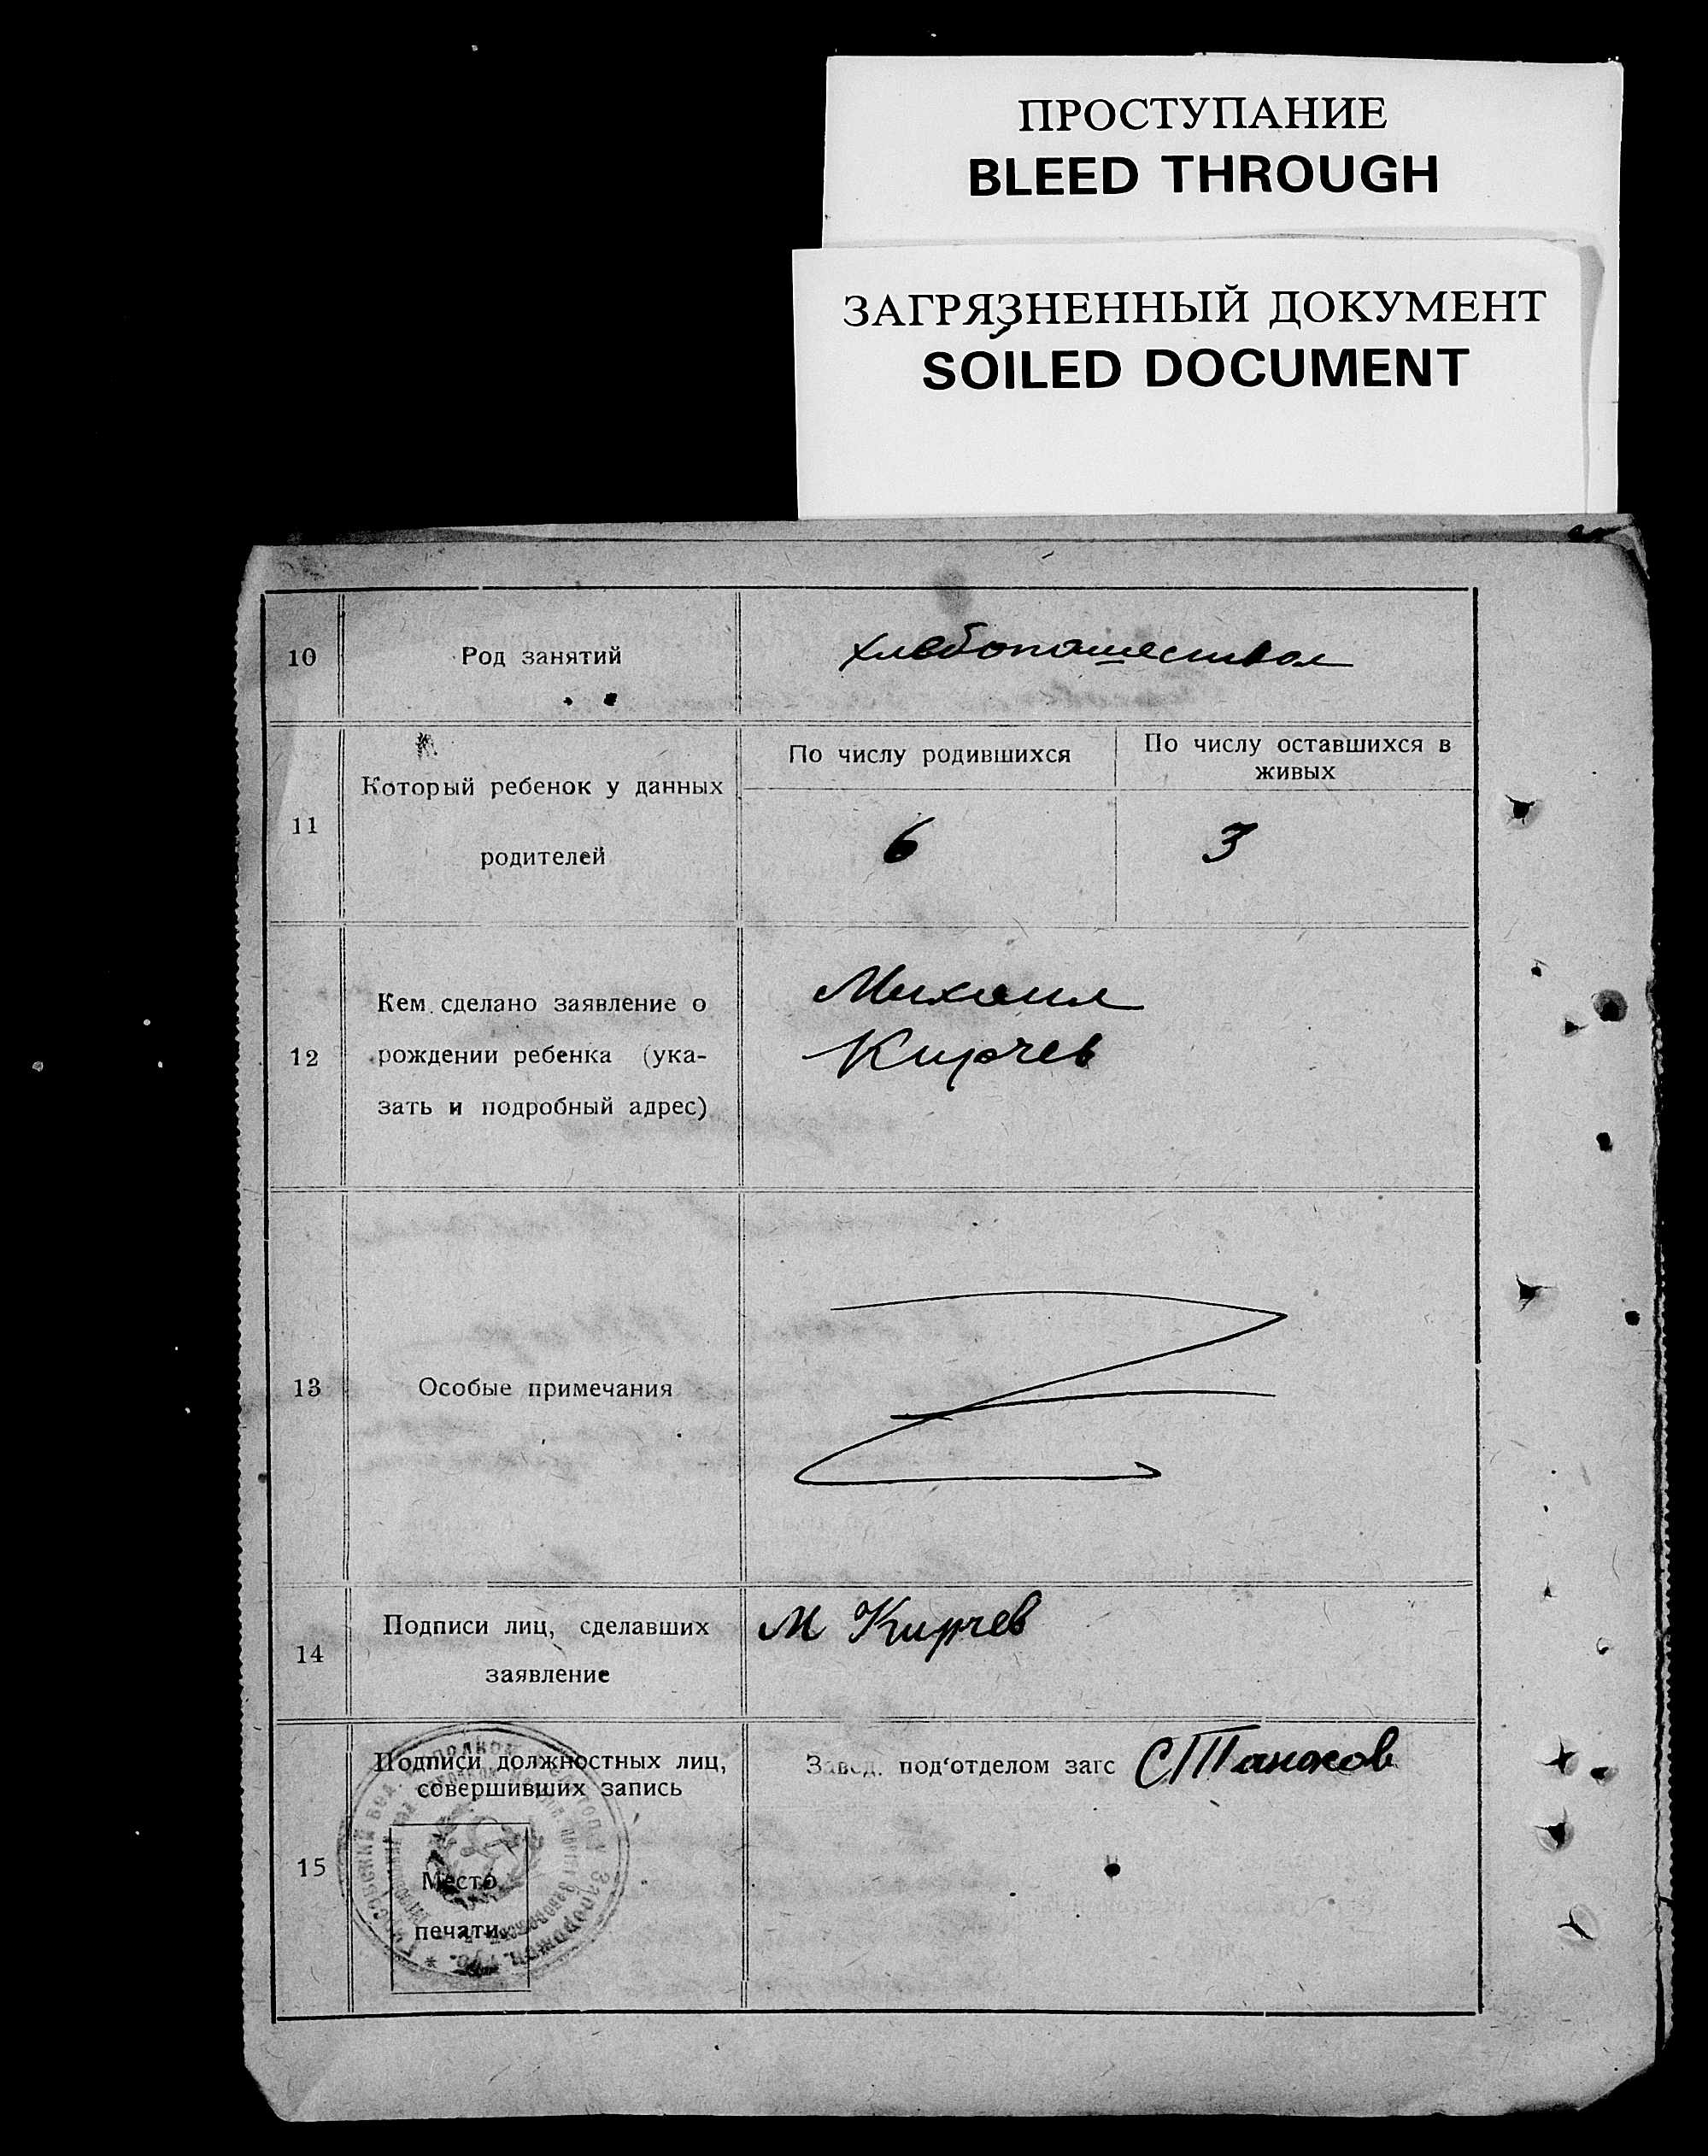 ПРОСТУПАНИЕ
BLEED THROUGH
ЗАГРЯЗНЕННЫЙ ДОКУМЕНТ
SOILED DOCUMENT
10
Род занятий
хлебопашеством
11
Который ребенок у данных
родителей
По числу родившихся
По числу оставшихся в
живых
6
3
12
Кем сделано заявление о
рождении ребенка (ука-
зать и подробный адрес)
Михаил
Кирчев
13
Особые примечания
14
Подписи лиц, сделавших
заявление
М Кирчев
15
Подписи должностных лиц,
совершивших запись
Место
печати
Завед. под'отделом загс